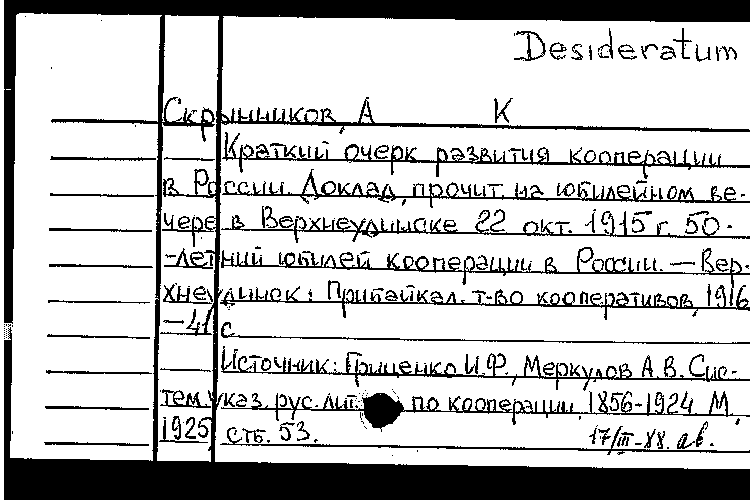 Desideratum
Скрынников, А К
Краткий очерк развития кооперации
в России. Доклад, прочит. на юбилейном ве-
чере в Верхнеудинске 22 окт. 1915 г. 50-
-летний юбилей кооперации в России. — Вер-
хнеудинск: Прибайкал. т-во кооперативов, 1916
— 41 с
Источник: Гриценко И.Ф., Меркулов А.В. Сис-
тем. указ. рус. лит. по кооперации. 1856-1924 М.
1925, стб. 53.
17/III-88. ав.